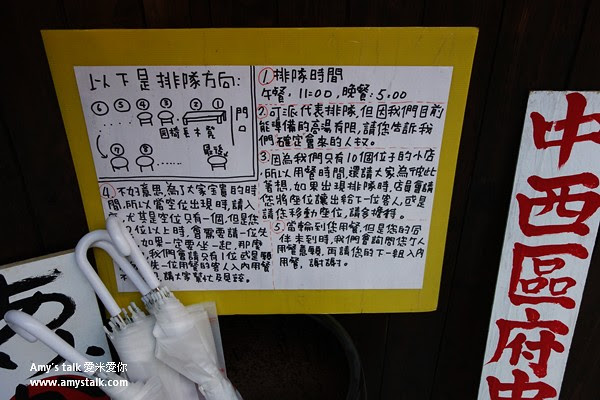 以下是排隊方向:
⑥ ⑤ ④ ③ ② ①
門口
圓椅 毛木凳
⑦ ⑧ ⑨ 最後
① 排隊時間
午餐, 11:00, 晚餐: 5:00
② 可派代表排隊, 但因我們目前
能準備的高湯有限, 請您告訴我
們確定會來的人數。
③ 因為我們只有10個位子的小店
,所以用餐時間,還請大家為彼此
著想, 如果出現排隊時, 店員會請
您將座位讓出給下一位客人或是
請您移動座位, 請會擔待。
④ 不好意思, 為了大家寶貴的時
間, 所以當空位出現時, 請入
尤其是空位只有一個, 但是您
位以上時, 會需要請一位先
如果一定要坐一起, 那麼
我們會請只有1位或是願
先一位用餐的客人入內用餐
請大家幫忙及見諒。
⑤ 當輪到您用餐, 但是您的同
伴未到時, 我們會詢問您个人
用餐意願, 再請您的下一組入內
用餐, 謝謝。
中西區府中
Amy's talk 愛米愛你
www.amystalk.com